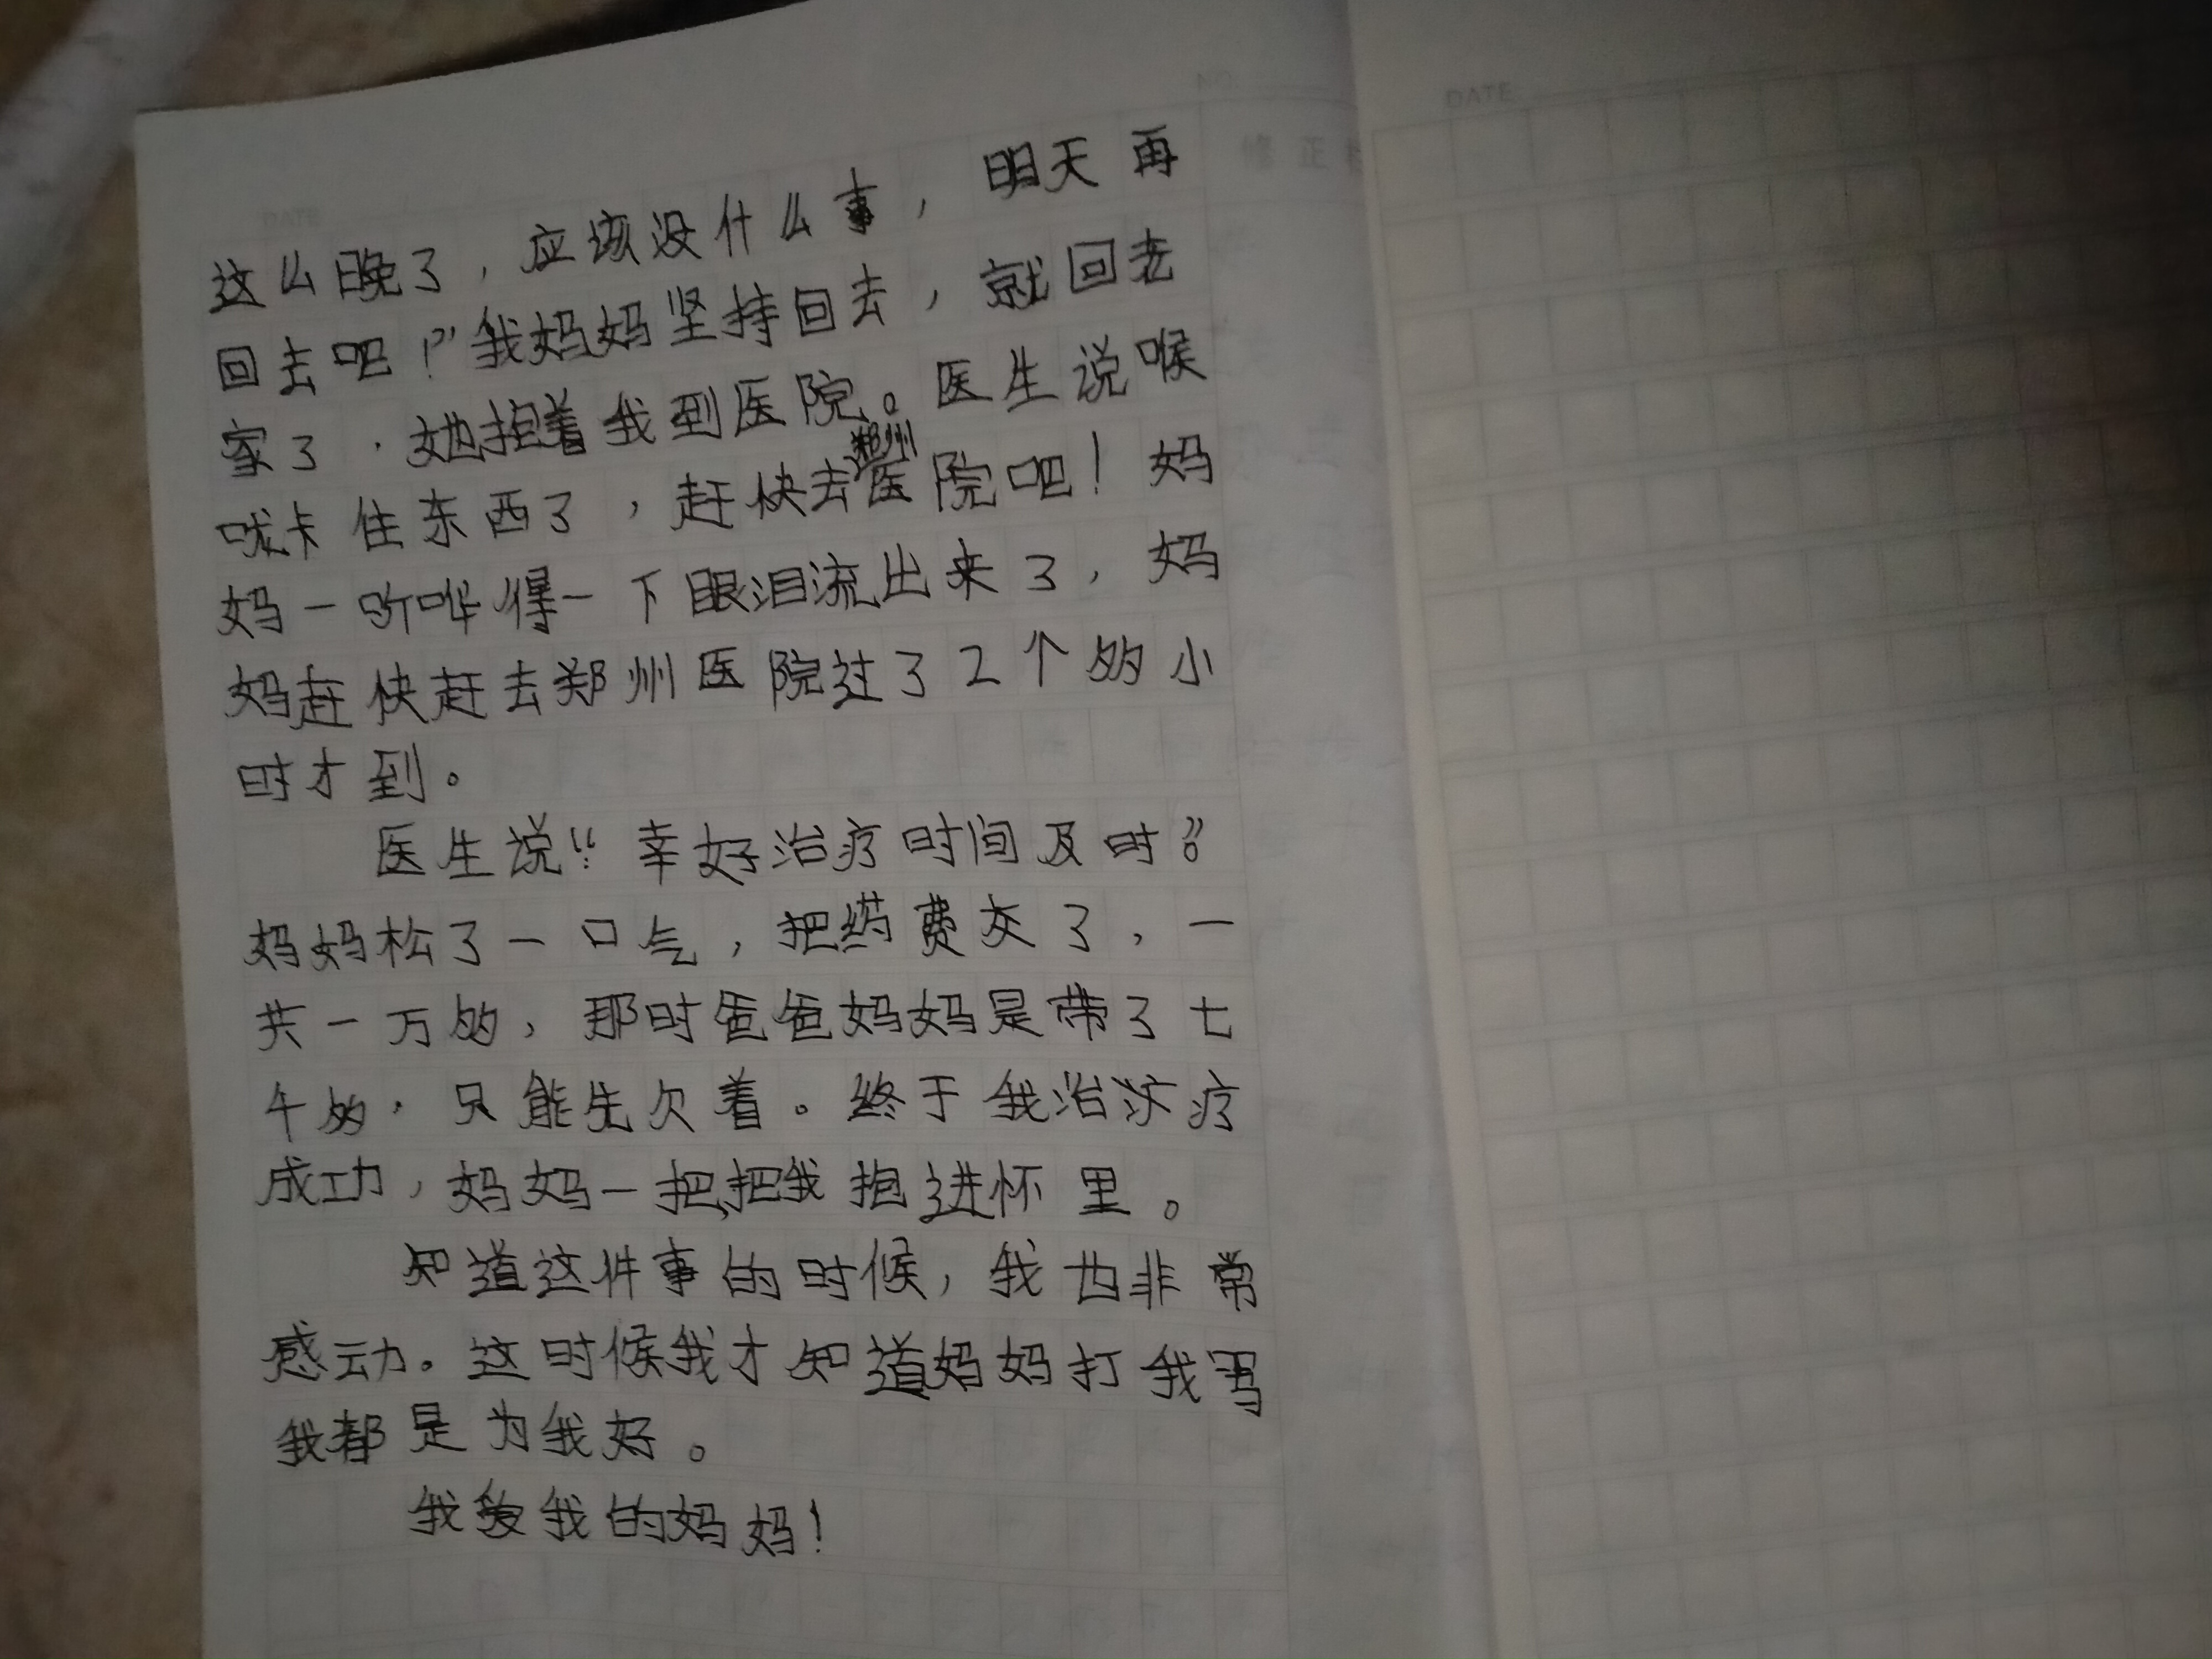 NO
DATE
DATE
修正
这么晚了，应该没什么事，明天再
回去吧！”我妈妈坚持回去，就回老
家了．她抱着我到医院。医生说喉
咙卡住东西了，赶快去郑州医院吧！妈
妈一听哗得一下眼泪流出来了，妈
妈赶快赶去郑州医院过了2个多小
时才到。
医生说：“幸好治疗时间及时。”
妈妈松了一口气，把药费交了，一
共一万多，那时爸爸妈妈是带了七
千多，只能先欠着。终于我治疗
成功，妈妈一把把我抱进怀里。
知道这件事的时候，我也非常
感动。这时候我才知道妈妈打我骂
我都是为我好。
我爱我的妈妈！